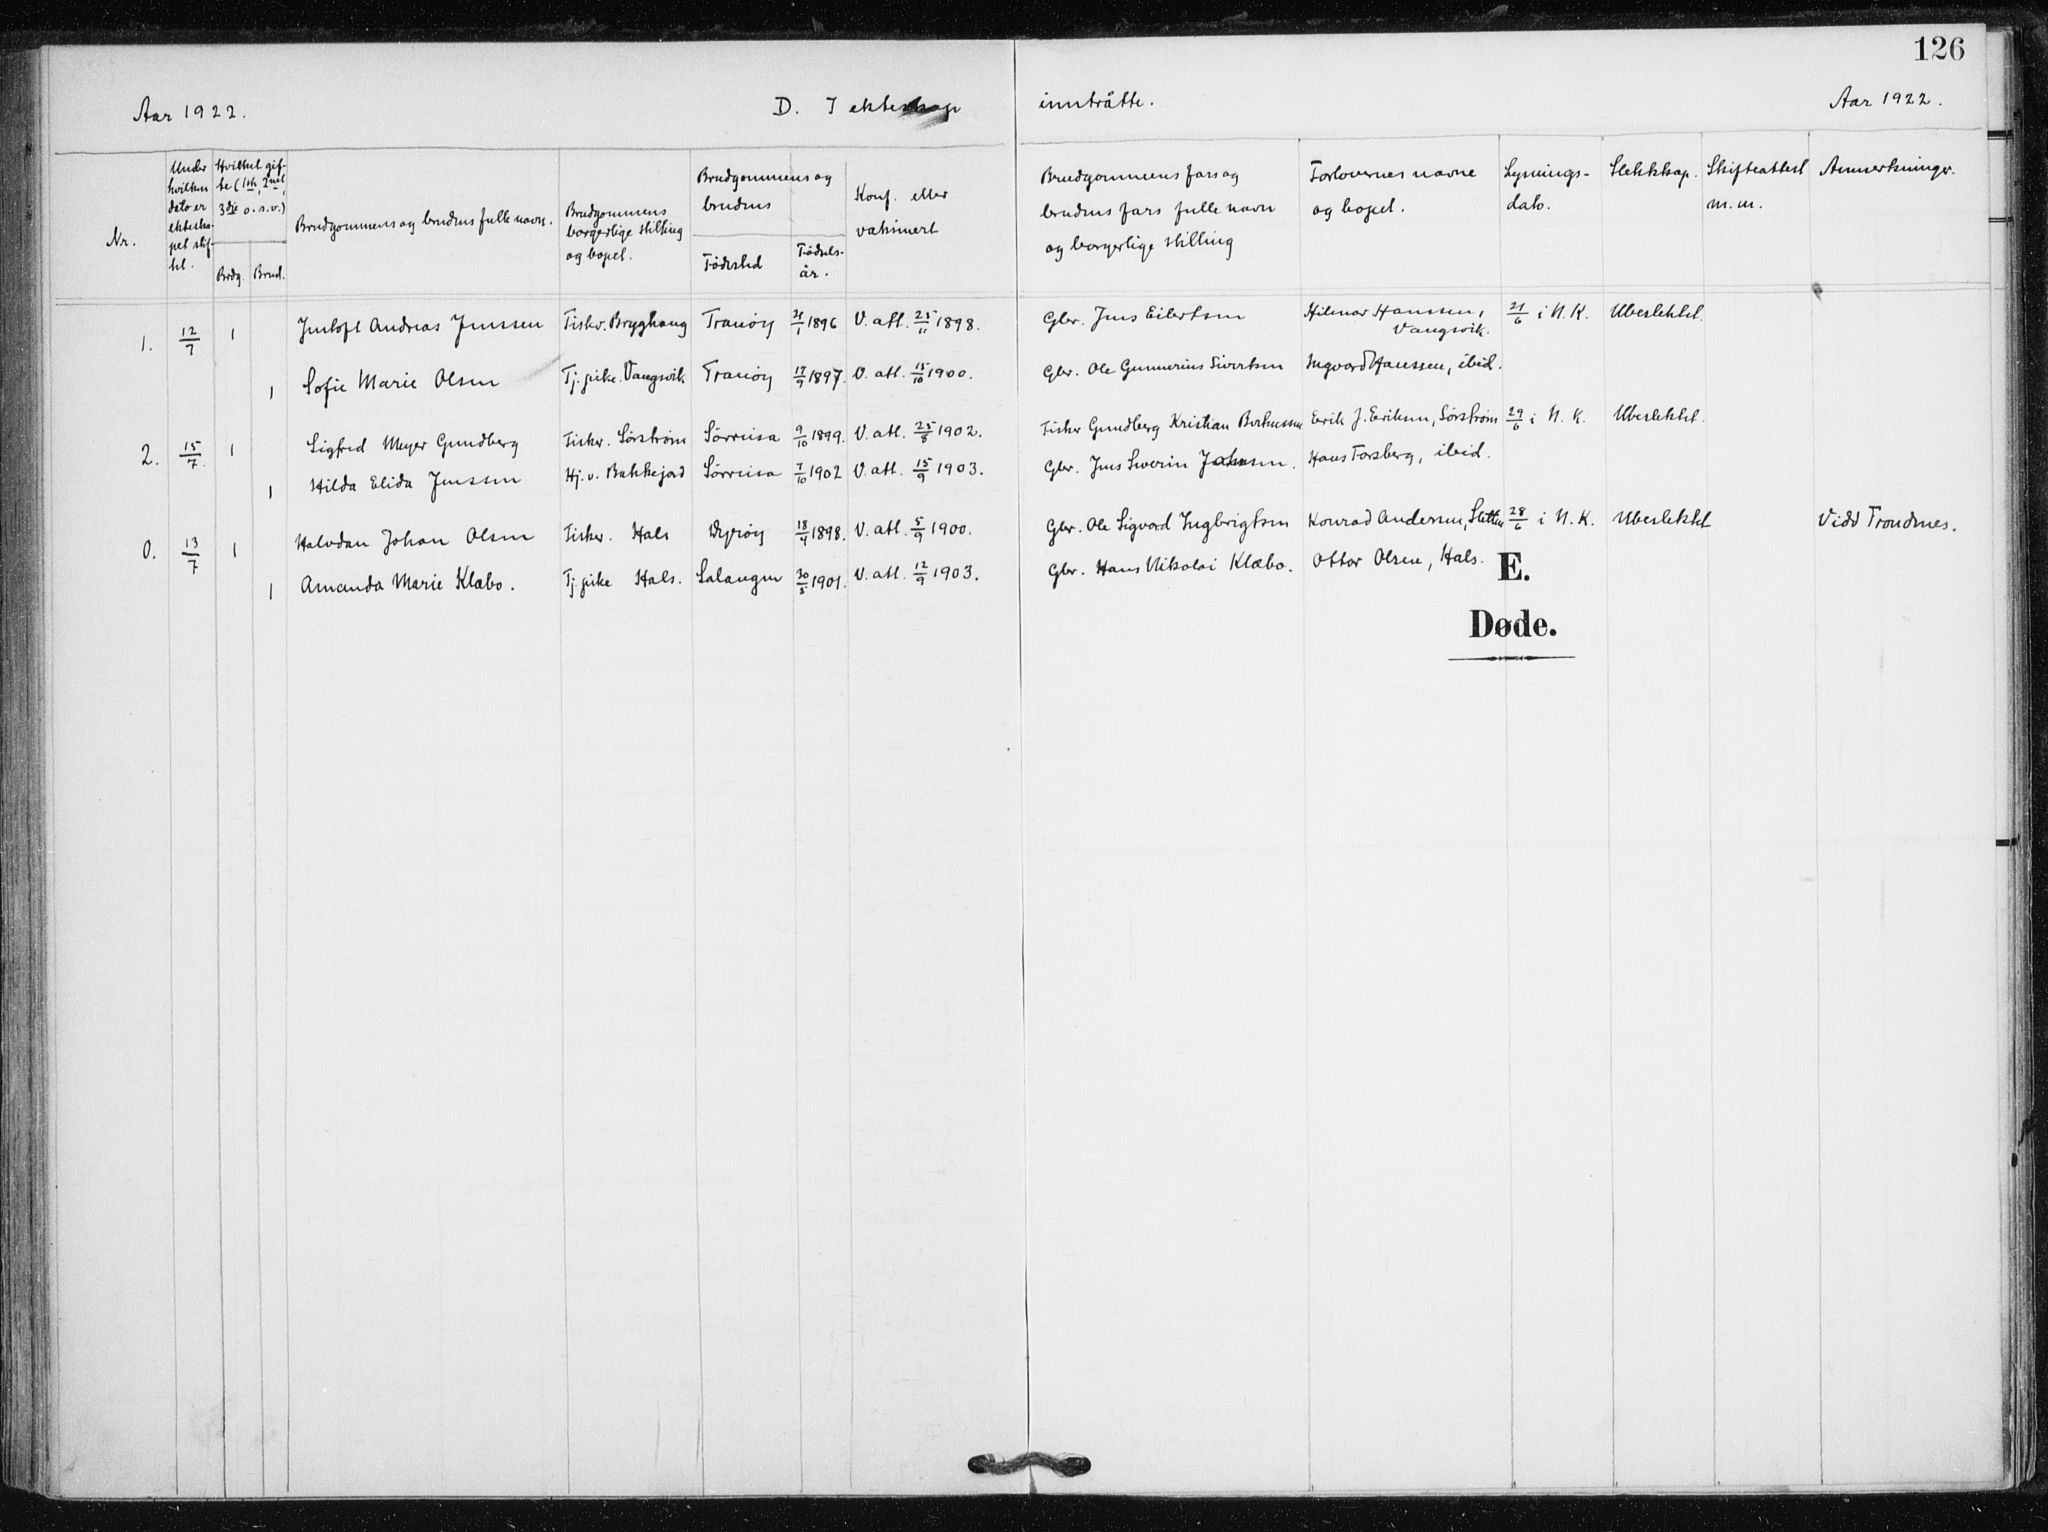 126
Aar 1922. D. I ekteskap innträtte. Aar 1922.
Nr.
Under hvilken dato er ekteska-pet stif-tet.
Hvilket gif-te (1ste, 2net, 3dje o.s.v.)
Brdg. Brud.
Brudgommens og brudens fulle navn.
Brudgommens borgerlige stilling og bopel.
Brudgommens og brudens
Fødested
Fødsels-år.
Konf. eller vaksinert
Brudgommens fars og brudens fars fulle navn og borgerlige stilling
Forlovernes navne og bopel.
Lysnings-dato.
Slektskap.
Skifteattest m.m.
Anmerkninger.
1. 12/7 1 Andreas Jenssen Fisker. Brygghaug Tranöy 21/1 1896 V. att. 25/11 1898. Gbr. Jens Eilertsen Hilmar Hanssen, Vangsvik. 21/6 i N.K. Ubeslektet.
1 Sofie Marie Olsen Tj. pike. Vangsvik Tranöy 17/9 1897. V. att. 15/10 1900. Gbr. Ole Gunnerius Sivertsen Ingvard Hanssen, ibid.
2. 15/7. 1 Sigfred Meyer Gundberg Fisker. Sörström Sörreisa 9/10 1899. V. att. 25/8 1902. Fisker Gundberg Kristian Erik J. Eriksen, Sörström 29/6 i N.K. Ubeslektet.
1 Hilda Elida Jenssen Hj. v. Bakkejord Sörreisa 7/10 1902 V. att. 15/9 1903. Gbr. Jens Severin Johnsen. Hans Forsberg, ibid.
0. 13/7 1 Halvdan Johan Olsen Fisker. Hals Dyröy 18/4 1898. V. att. 5/9 1900. Gbr. Ole Sigvard Ingbrigtsen Konrad Andersen, Sletten 28/6 i N.K. Ubeslektet Vidd Trondnes.
1 Amanda Marie Klæbo. Tj. pike Hals. Salangen 30/5 1901. V. att. 12/9 1903. Gbr. Hans Nikolai Klæbo. Ottar Olsen, Hals.
E.
Døde.